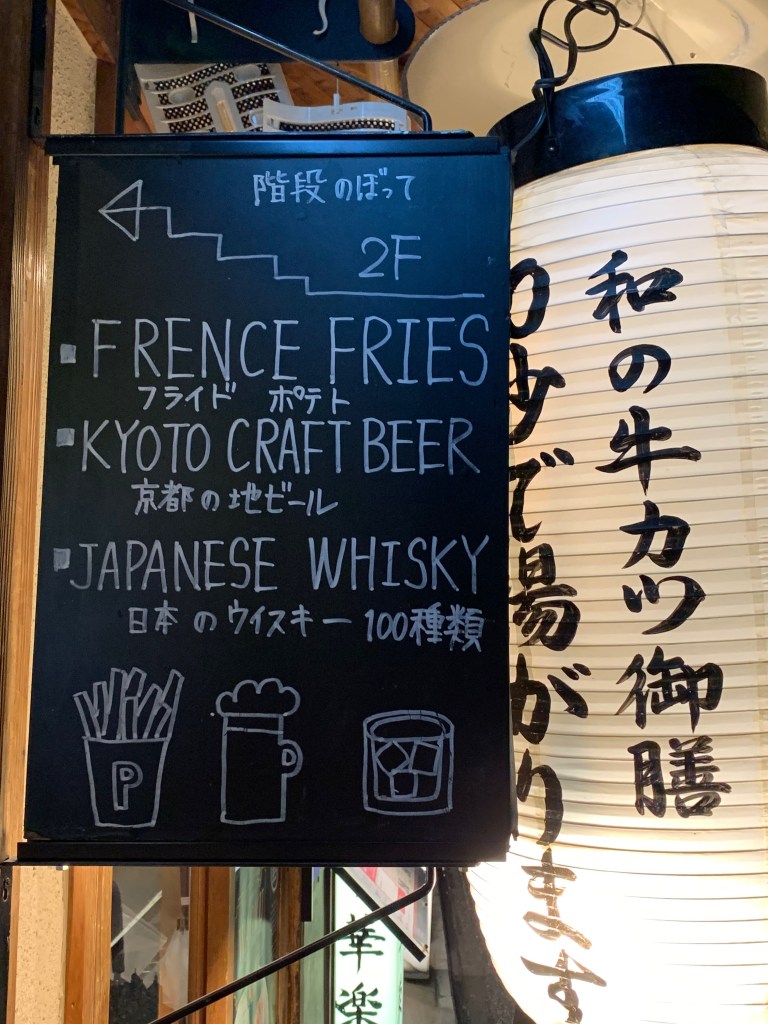 階段のぼって
2F
FRENCE FRIES
フライド ポテト
KYOTO CRAFT BEER
京都の地ビール
JAPANESE WHISKY
日本のウイスキー 100種類
P
和の牛カツ御膳
0秒で揚がります
華楽